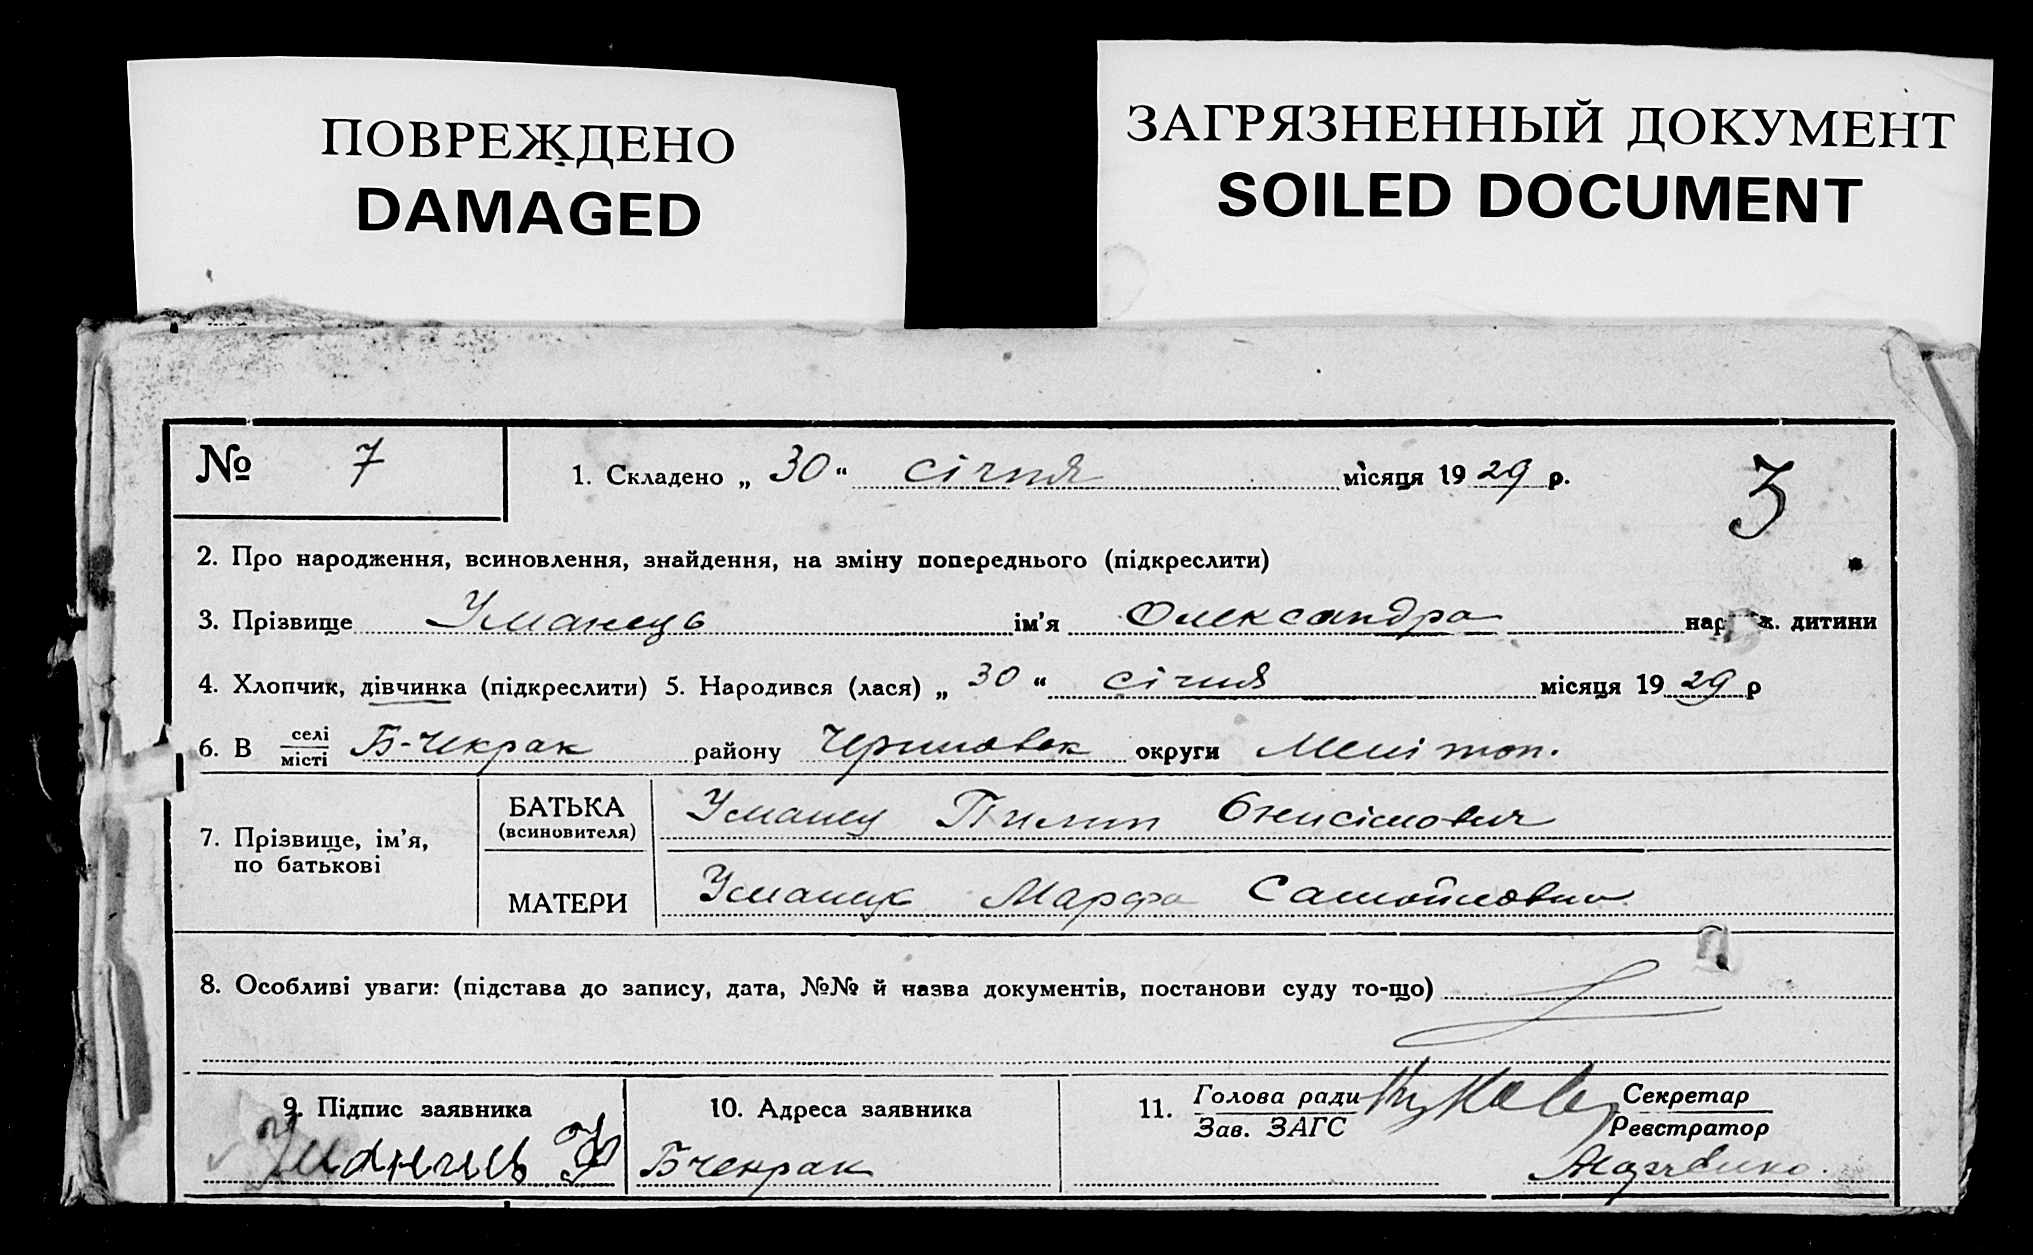 ПОВРЕЖДЕНО
DAMAGED
ЗАГРЯЗНЕННЫЙ ДОКУМЕНТ
SOILED DOCUMENT
№ 7
1. Складено „ 30 “ січня місяця 1929 р.
3
2. Про народження, всиновлення, знайдення, на зміну попереднього (підкреслити)
3. Прізвище Уманець ім'я Олександра нар ж. дитини
4. Хлопчик, дівчинка (підкреслити) 5. Народився (лася) „ 30 “ січня місяця 1929 р
6. В селі місті Б-Чекрак району Черниговск округи Мелітоп.
7. Прізвище, ім'я, по батькові
БАТЬКА (всиновителя) Уманец Пилип Онисімович
МАТЕРИ Уманец Марфа Самойловна
8. Особливі уваги: (підстава до запису, дата, №№ й назва документів, постанови суду то-що)
9. Підпис заявника
Уманиць
10. Адреса заявника
Бчекрак
11. Голова ради
Зав. ЗАГС
Секретар
Реєстратор